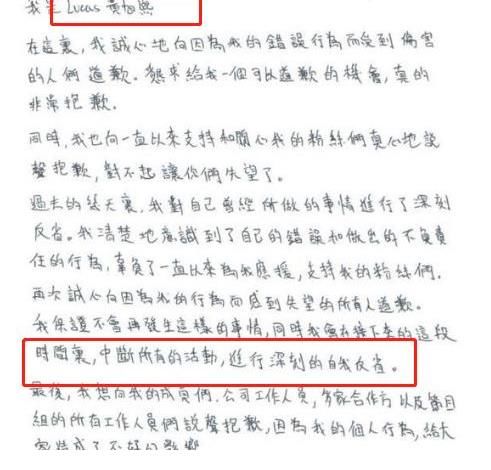 我是 Lucas 黃旭熙
在這裏，我誠心地向因為我的錯誤行為而受到傷害
的人們道歉。懇求給我一個可以道歉的機會，真的
非常抱歉。
同時，我也向一直以來支持和關心我的粉絲們真心地說
聲抱歉，對不起讓你們失望了。
過去的幾天裏，我對自己曾經所做的事情進行了深刻
反省。我清楚地意識到了自己的錯誤和做出的不負責
任的行為，辜負了一直以來為我應援，支持我的粉絲們。
再次誠心向因為我的行為而感到失望的所有人道歉。
我保證不會再發生這樣的事情，同時我會在接下來的這段
時間裏，中斷所有的活動，進行深刻的自我反省。
最後，我想向我的成員們，公司工作人員，多家合作方以及節目
組的所有工作人員們說聲抱歉，因為我的個人行為，給大
家造成了不好的影響